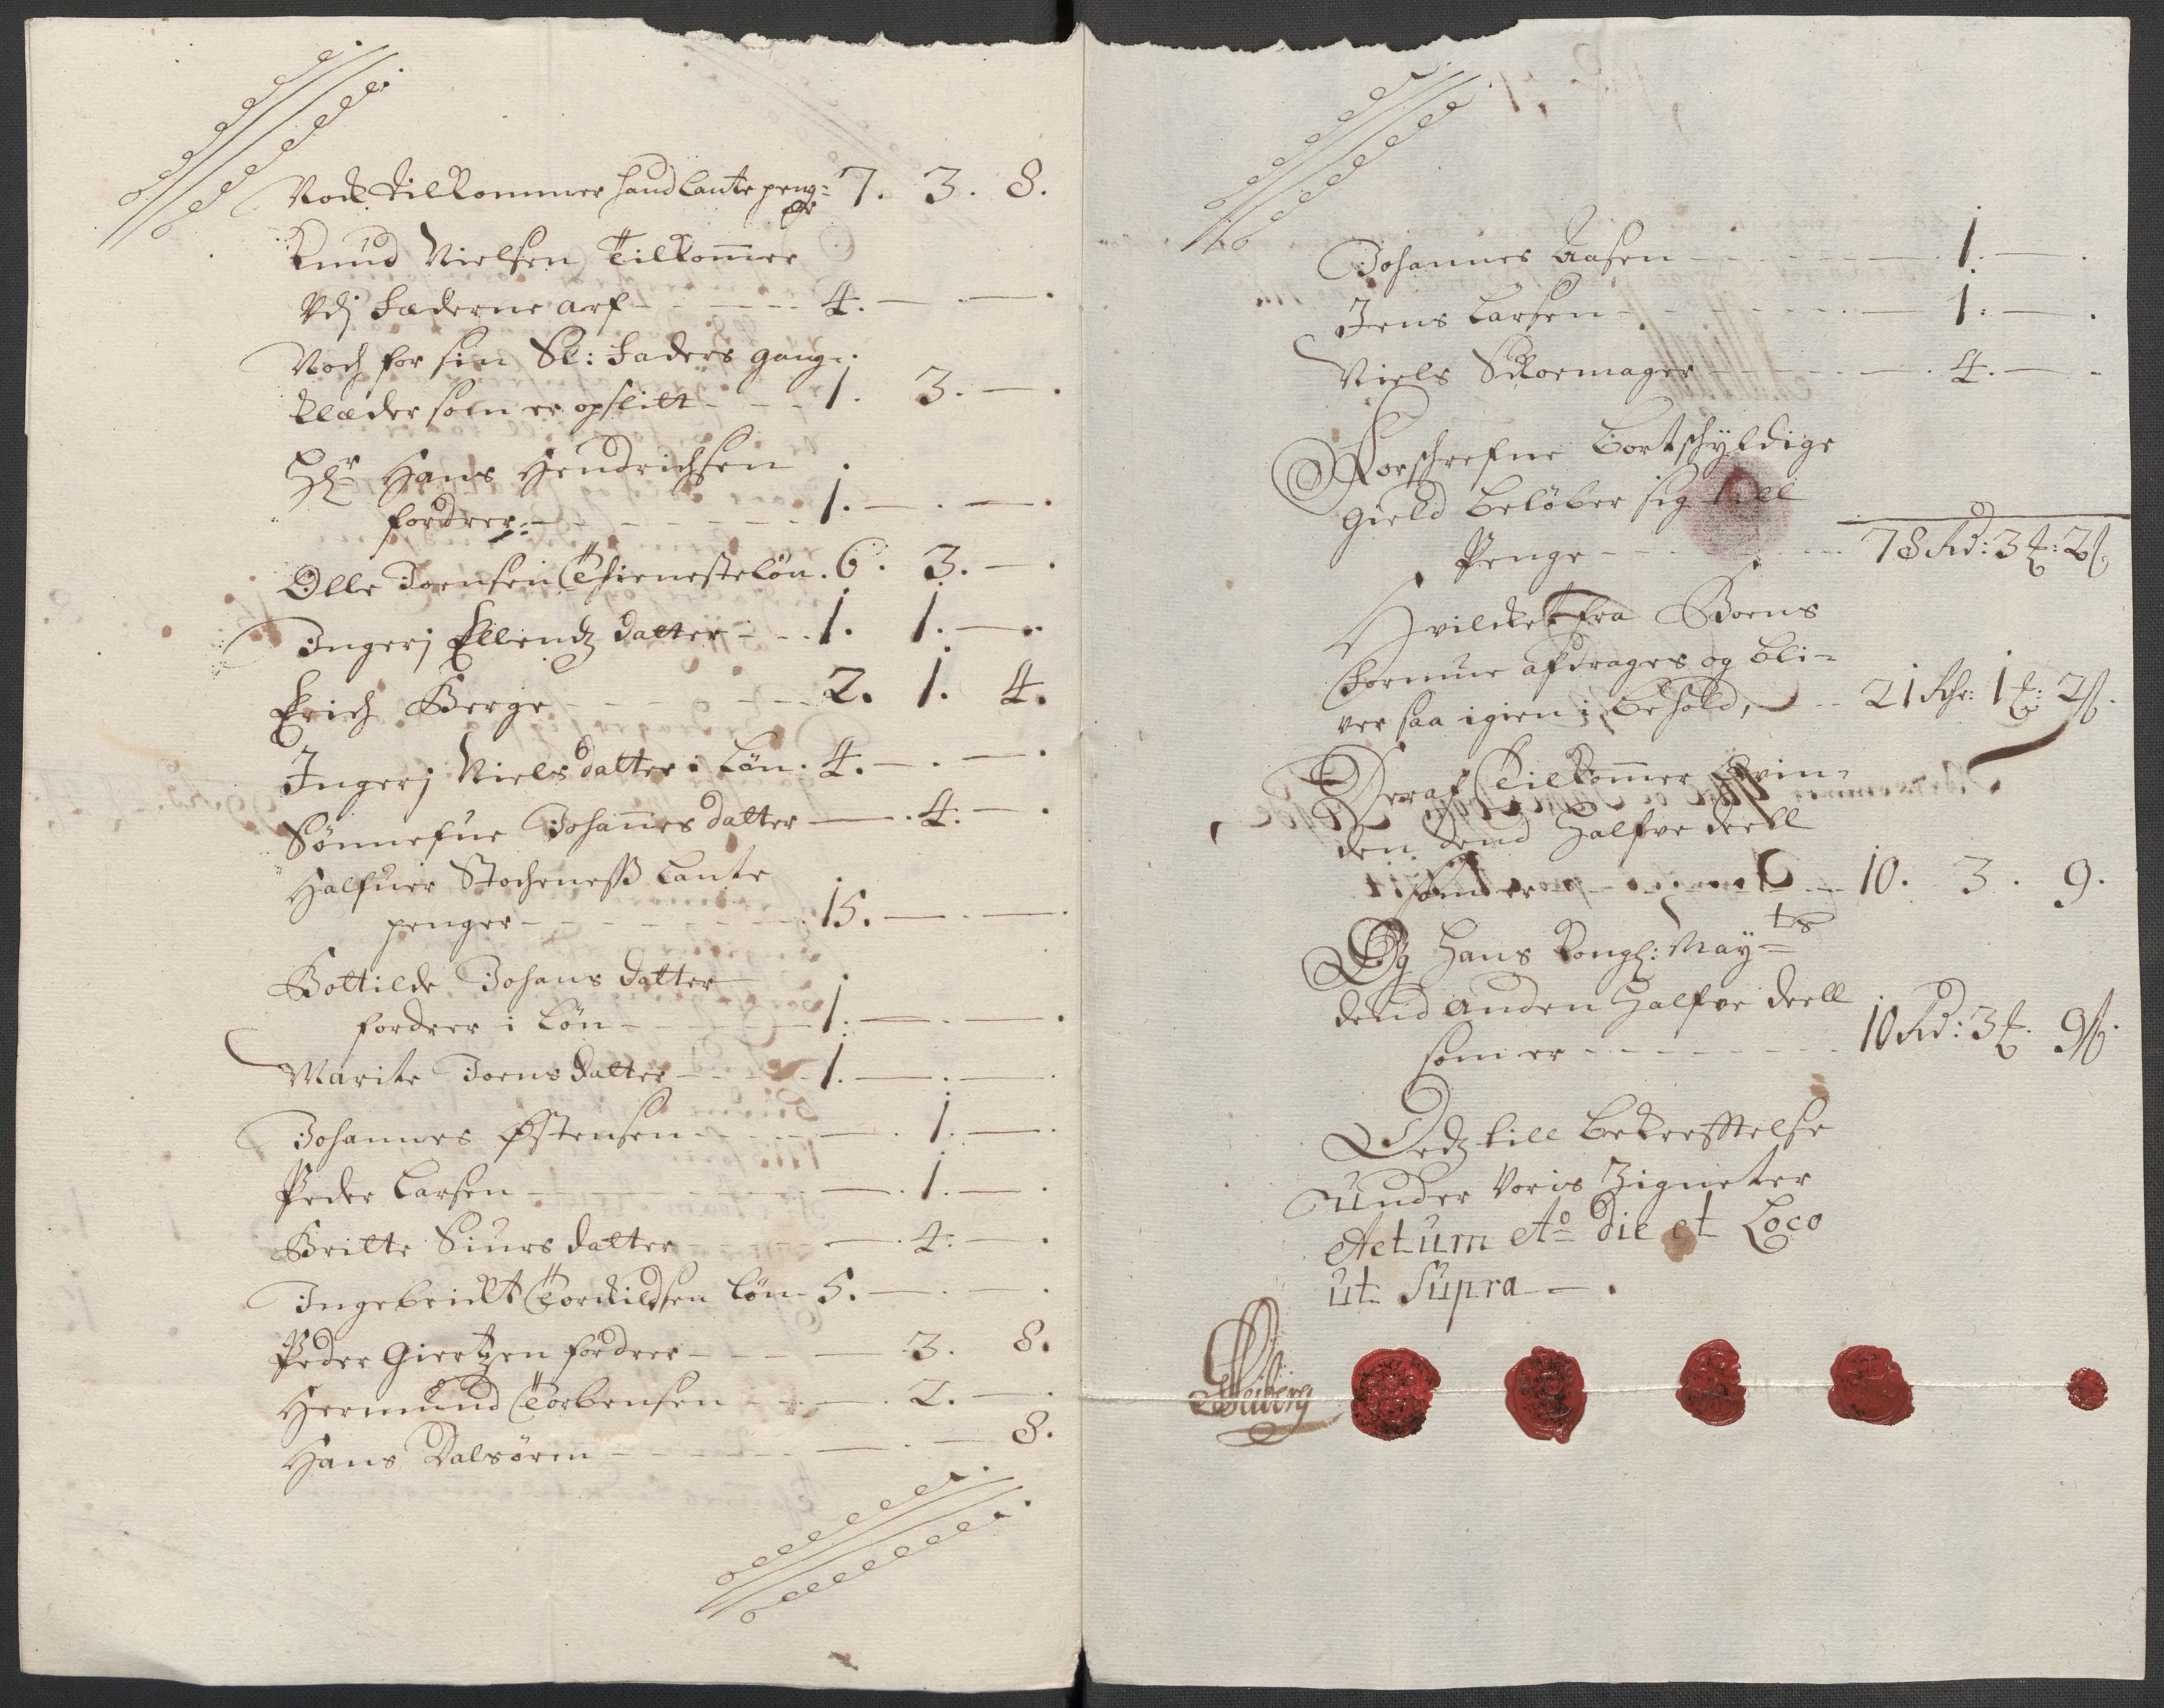 Noch tilkommer hand lante peng= 7. 3. 8.
er
Knud Nielsen Tilkommer
Udj Fæderne arf - - - - 4. — . — .
Noch for sin Sl: Faders gang=
klæder som er opslitt - - - 1. 3. — .
Hr Hans Hendrichsen
fordrer - - - - - - 1. — . — .
Olle Joensen Thienesteløn . 6. 3. — .
Ingerj Ellendz datter - - - 1. 1. — .
Erich Berge - - - - - - 2. 1. 4.
Ingerj Nielsdatter i Løn . 4. — . — .
Sønnefue Johannes datter — . 4. — .
Halfuer Stochenæss Lante
penger - - - - - - 15. — . — .
Bottilde Johans datter
fordrer i Løn - - - - - 1. — . — .
Marite Joens datter - - - - 1. — . — .
Johannes Østensen - - - - — . 1. — .
Peder Larsen - - - - - - — . 1. — .
Britte Siurs datter - - - - — . 4. — .
Ingebrickt Torkildsen løn - 5. — . — .
Peder Giertzen fordrer - - - — . 3. 8.
Hermund Torbensen - - - — . 2. — .
Hans Dalsøren - - - - - - — . — 8.
Johannes Aasen - - - - - - — 1. — .
Jens Larsen - - - - - - — 1. — .
Niels Skoemager - - - - - — . 4. — .
Forschrefne bortschyldige
gield beløber sig till
Penge - - - - - - 78 Rd: 3 ꝑ: 2 s
Hvilcket fra Boens
Formue afdrages og bli=
ver saa igien i behold, - - 21 Rdr: 1 ꝑ: 2 s.
Deraf Tilkommer Qvin=
den dend Halfve deell
som er - - - - - - 10. 3. 9.
Og Hans Kongl: May=tes
dend anden Halfve deell
som er - - - - - - - - 10 Rd: 3 ꝑ. 9 s.
Dedz till bekreftelse
under voris Zigneter
Actum Ao die et Loco
ut Supra — .
Heiberg